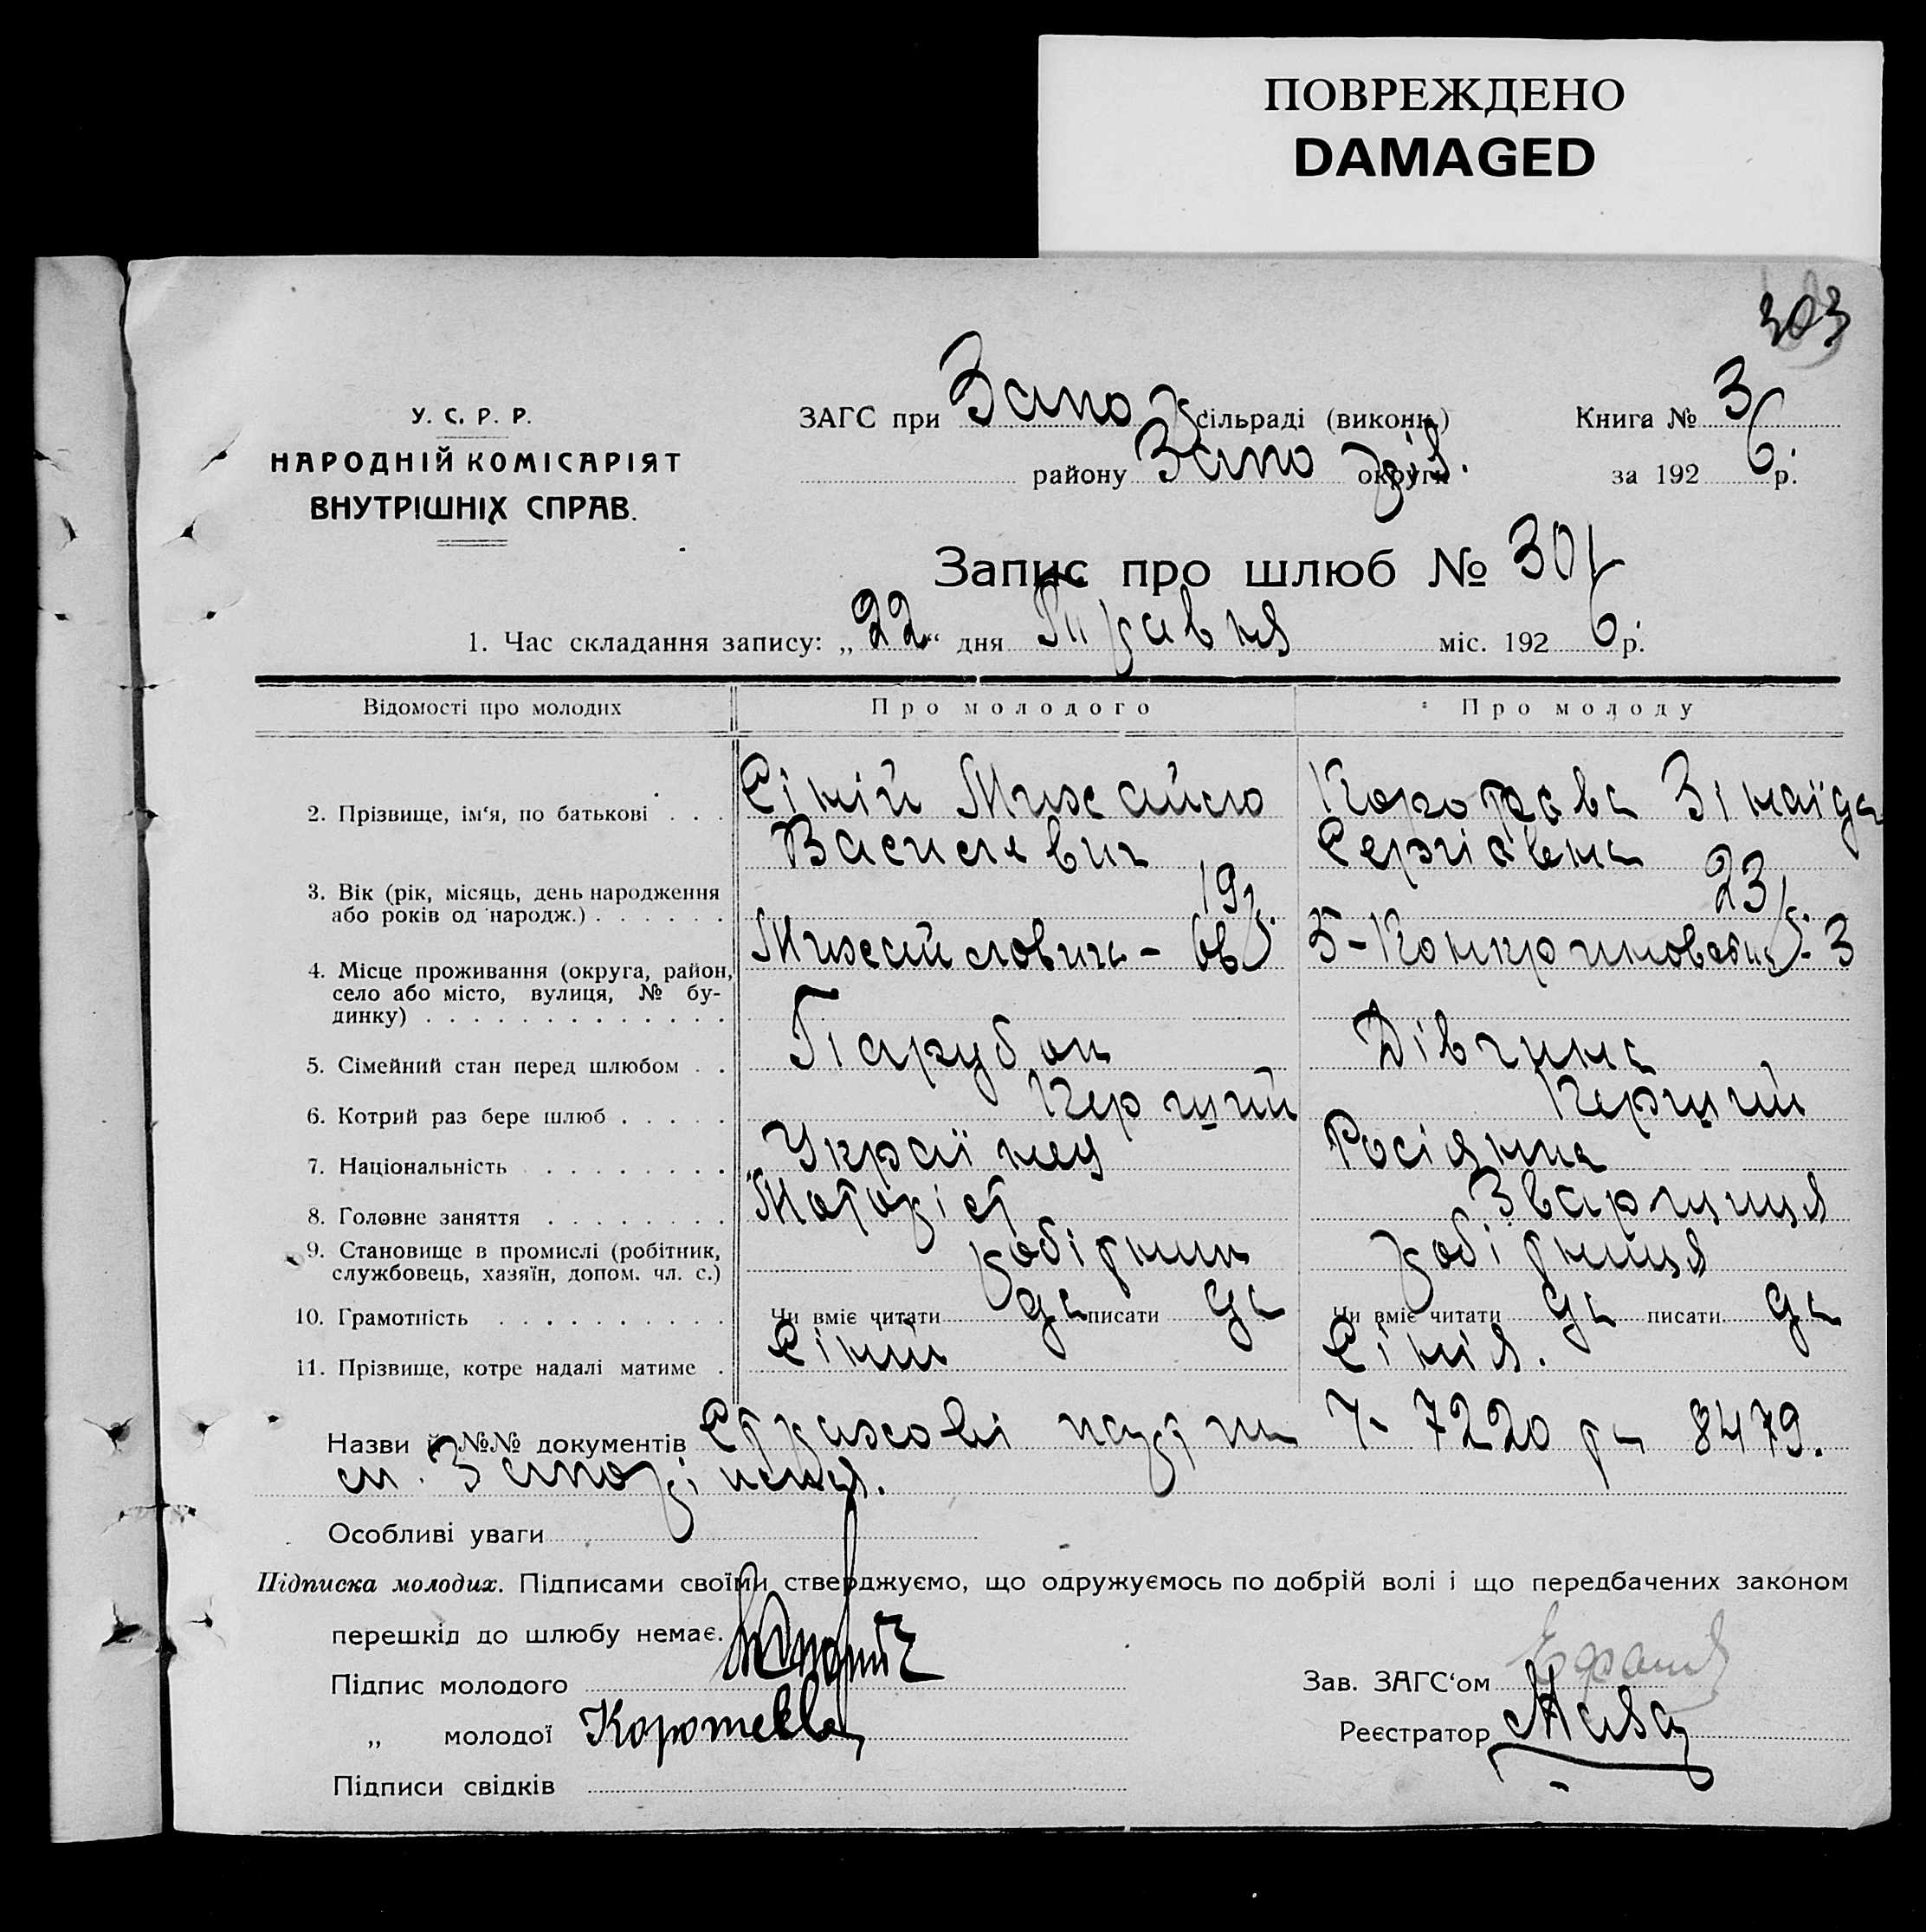 ПОВРЕЖДЕНО
DAMAGED
303
У. С. Р. Р.
НАРОДНІЙ КОМІСАРІЯТ
ВНУТРІШНІХ СПРАВ.
ЗАГС при Запо сільраді (виконк.)
Книга № 3
району Запо округи
за 1926 р.
Запис про шлюб №
1. Час складання запису: „22“ дня Травня міс. 1926 р.
Відомості про молодих
Про молодого
Про молоду
2. Прізвище, ім‘я, по батькові . . .
Сіній Михайло
Василевич
Зінаїда
Сергіївна
3. Вік (рік, місяць, день народження
або років од народж.) . . . . . .
19 р.
23 р.
4. Місце проживання (округа, район,
село або місто, вулиця, № бу-
динку) . . . . . . . . . . . . .
5. Сімейний стан перед шлюбом . .
Парубок
Дівчина
6. Котрий раз бере шлюб . . . . .
Перший
Перший
7. Національність . . . . . . . . .
Українец
Росіянка
8. Головне заняття . . . . . . . .
Моторіст
9. Становище в промислі (робітник,
службовець, хазяїн, допом. чл. с.)
робітник
робітниця
10. Грамотність . . . . . . . . . .
Чи вміє читати да писати да
Чи вміє читати да писати да
11. Прізвище, котре надалі матиме .
Сіній
Сінія.
Назви й №№ документів Страхові 7220 та 8479.
Особливі уваги
Підписка молодих. Підписами своїми стверджуємо, що одружуємось по добрій волі і що передбачених законом
перешкід до шлюбу немає.
Підпис молодого
Зав. ЗАГС‘ом
„ молодої
Реєстратор
Підписи свідків